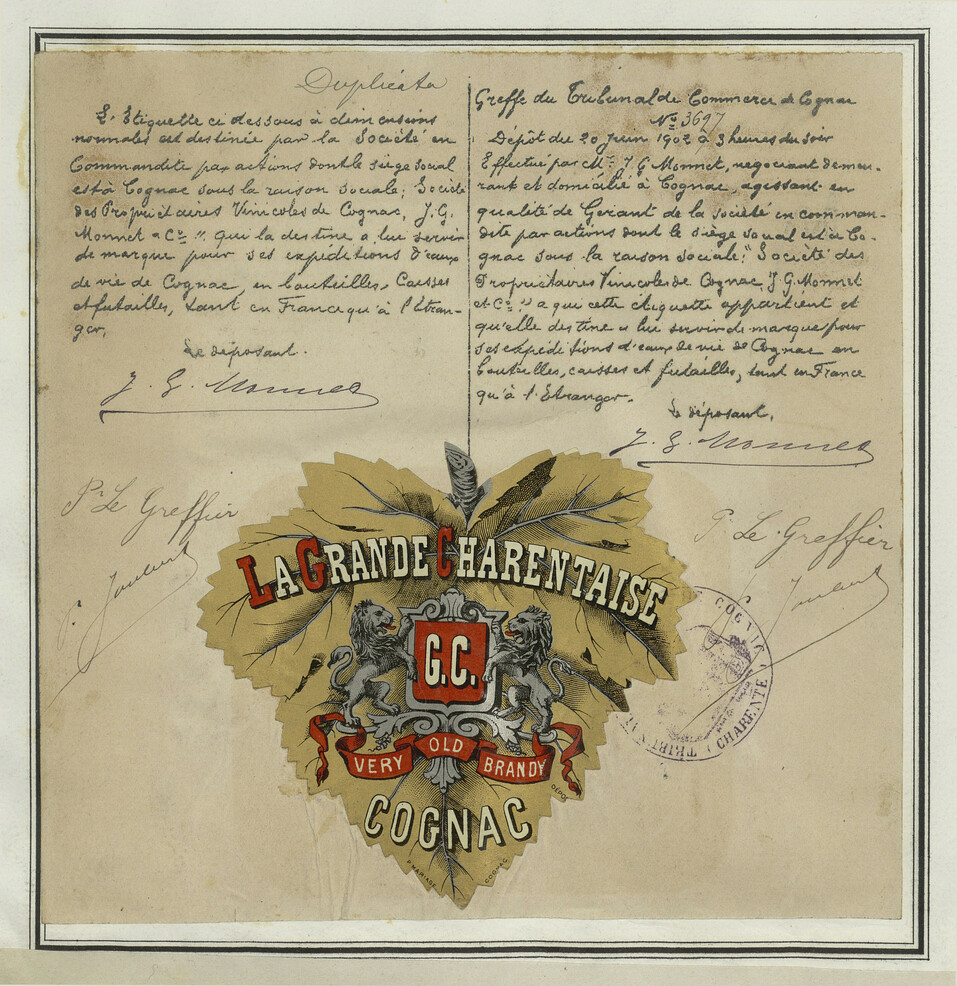 Duplicata
L'Etiquette ci dessous à dimensions
normales est destinée par la Société en
Commandite par actions dont le siège social
est à Cognac sous la raison sociale; Société
des Propriétaires Vinicoles de Cognac, J.G.
Monnet & Cie ,, qui la destine a lui servir
de marque pour ses expéditions d'eaux
de vie de Cognac, en bouteilles, Caisses
et futailles, tant en France qu'à l'étran-
ger,
Le déposant.
J. G. Monnet
Pr Le Greffier
Greffe du Tribunal de Commerce de Cognac
No 3697
Dépôt du 20 Juin 1902 à 3 heures du soir
Effectué par Mr. J. G Monnet, negociant demeu-
rant et domicilié à Cognac, agissant en
qualité de Gérant de la société en comman-
dite par actions dont le siège social est à Co-
gnac sous la raison sociale; "Société des
Propriétaires Vinicoles de Cognac, J. G. Monnet
et Cie ,, a qui cette étiquette appartient et
qu'elle destine a lui servir de marque pour
ses expéditions d'eaux de vie de Cognac en
bouteilles, caisses et futailles, tant en France
qu'à l'Etranger.
Le déposant,
J. G. Monnet
Pr Le Greffier
LA GRANDE CHARENTAISE
G.C.
VERY OLD BRANDY
COGNAC
DÉPOSÉ
P. MARIAGE COGNAC
TRIBUNAL COGNAC CHARENTE